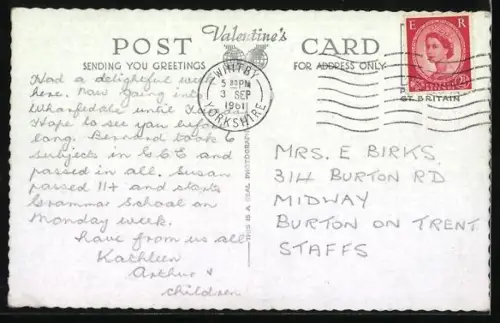 POST Valentine's CARD
SENDING YOU GREETINGS FOR ADDRESS ONLY
WHITBY
5 PM
3 SEP
1961
YORKSHIRE
E R
2½D
GT. BRITAIN
Had a delightful week
here. Now going into
Wharfedale until
Hope to see you before
long. Bernard took 6
subjects in G.C.E and
passed in all. Susan
passed 11+ and starts
Grammar School on
Monday week.
Love from us all
Kathleen
Arthur &
children
THIS IS A REAL PHOTOGRAPH
MRS. E BIRKS.
314 BURTON RD
MIDWAY
BURTON ON TRENT
STAFFS